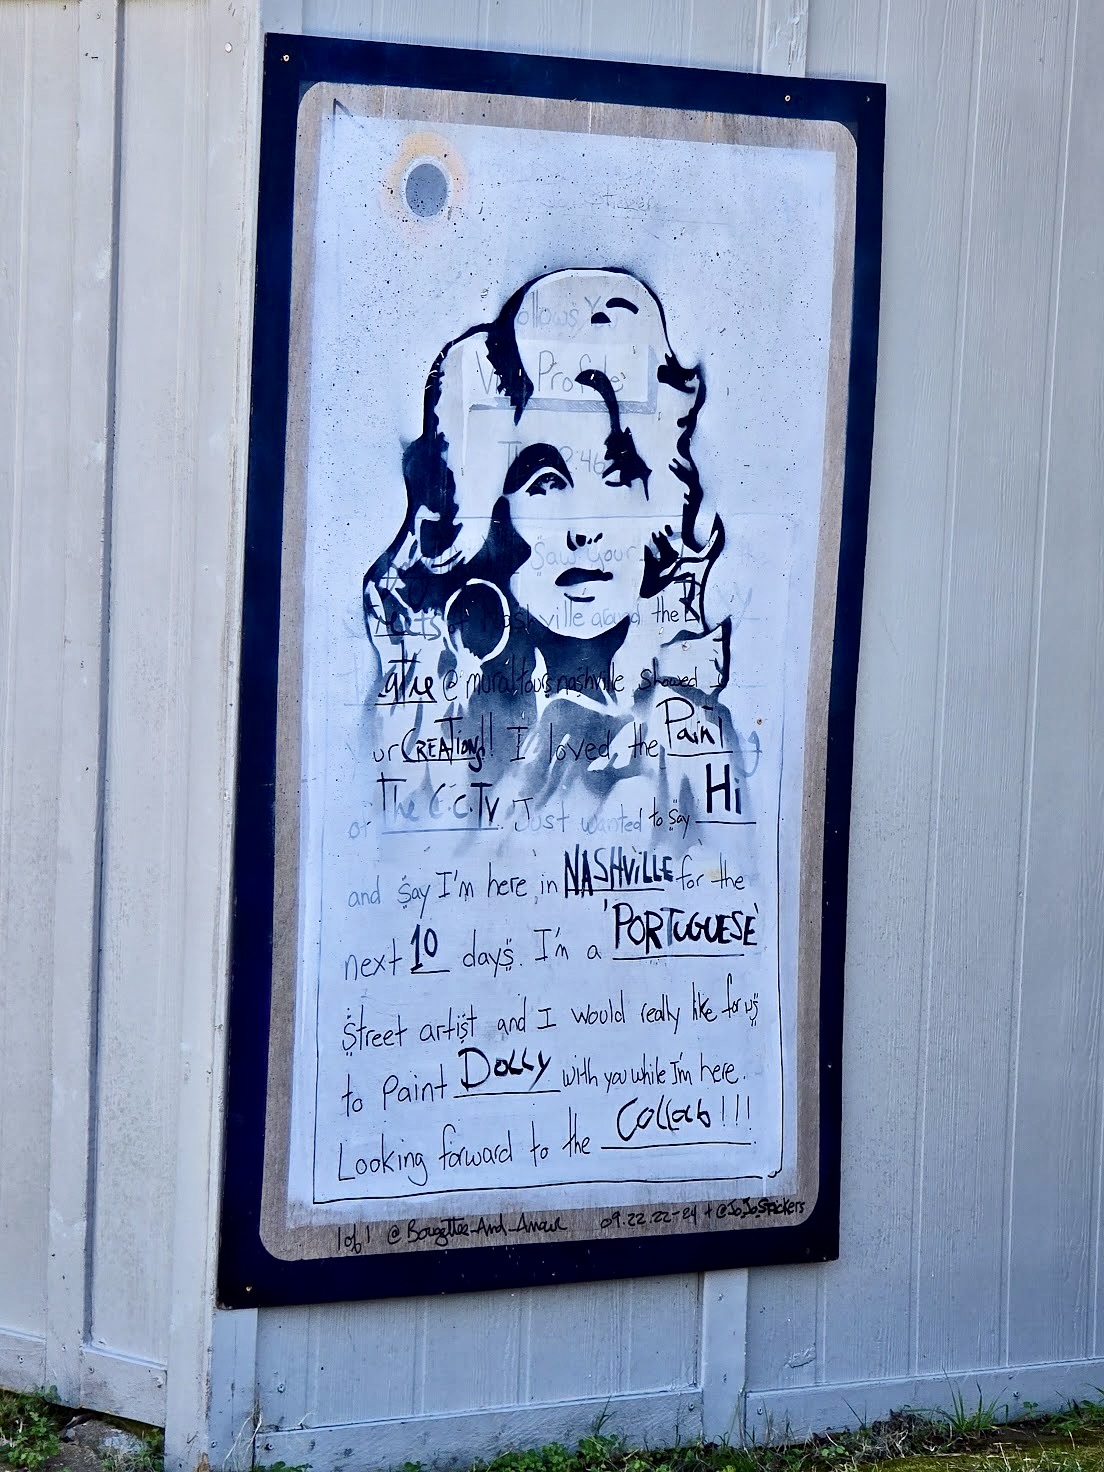 Follows You
View Profile
Saw Your
Streets of Nashville around the
Katie @muraltoursnashville showed
ur CREATIONS!! I loved the Paint
of The CCTV Just wanted to say Hi
and say I'm here in NASHVILLE for the
next 10 days. I'm a 'PORTUGUESE'
Street artist and I would really like for us
to paint DOLLY with you while I'm here.
Looking forward to the Collab!!!
1 of 1 09.22.22-24 + @JoJoStickers